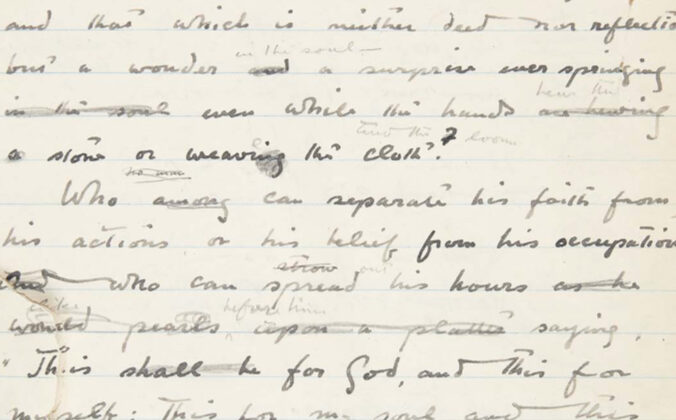 and that which is neither deed nor reflectio
in the soul
but a wonder and a surprise ever springing
hew the
in the soul even while the hands are hewing
tend the loom
a stone or weaving the cloth?
no man
Who among can separate his faith from
his actions or his belief from his occupation
strow out
And who can spread his hours as he
like before him
would pearls upon a platter saying,
"This shall be for God, and this for
myself; This for my soul and this